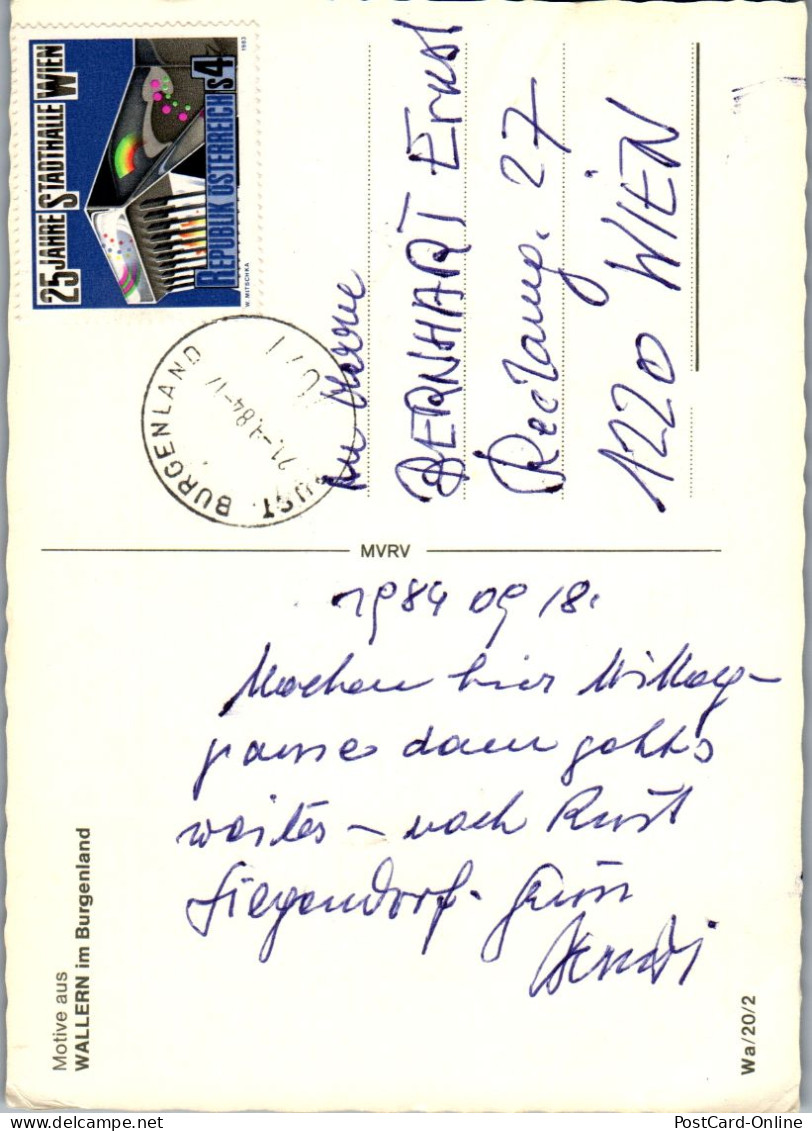 25 JAHRE STADTHALLE WIEN
REPUBLIK ÖSTERREICH
S 4
1983
W. MITSCHKA
RUST, BURGENLAND
An Herrn
BERNHART Ernst
27
1220 WIEN
MVRV
1984 09 18.
Machen hier Mittag-
pause dann gehts
weiter - nach Rust
Siegendorf.
Motive aus
WALLERN im Burgenland
Wa/20/2
www.delcampe.net
PostCard-Online